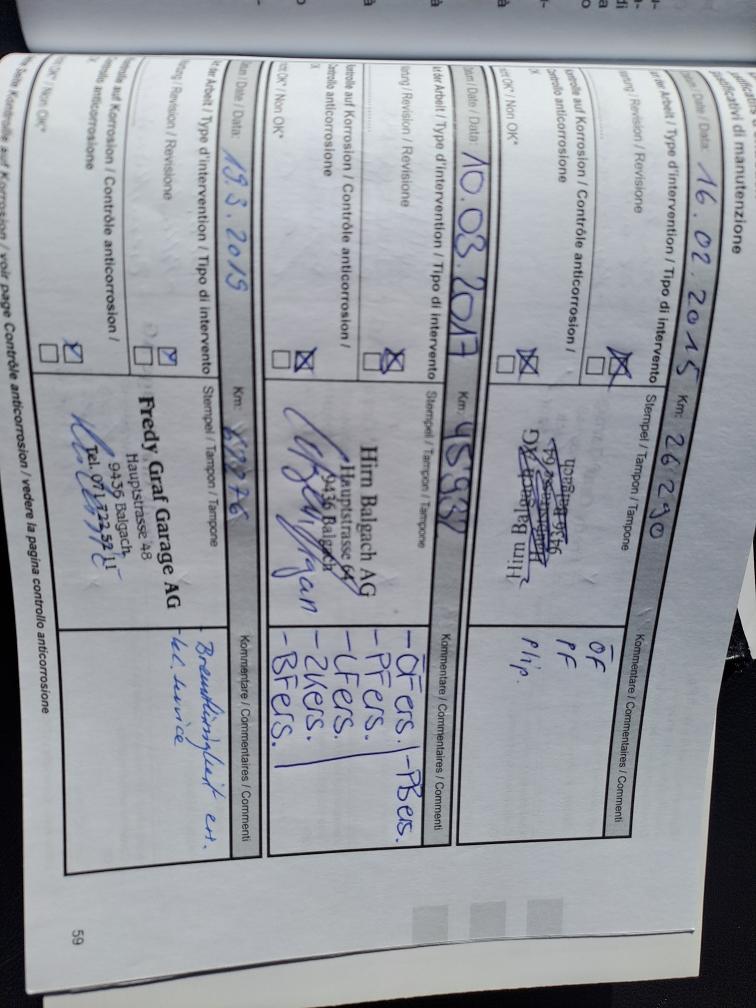 di manutenzione
Date / Data: 16.02.2015 Km: 26290
der Arbeit / Type d'intervention / Tipo di intervento Stempel / Tampon / Tampone Kommentare / Commentaires / Commenti
/ Revision / Revisione
auf Korrosion / Contrôle anticorrosion /
anticorrosione
OK* / Non OK*
Hirn Balgach AG
9436 Balgach
ÖF
PF
Plip.
Date / Data: 10.03.2017 Km: 45937
der Arbeit / Type d'intervention / Tipo di intervento Stempel / Tampon / Tampone Kommentare / Commentaires / Commenti
/ Revision / Revisione
auf Korrosion / Contrôle anticorrosion /
anticorrosione
OK* / Non OK*
Hirn Balgach AG
Hauptstrasse 64
9436 Balgach
-ÖFers. / -PBers.
-PFers.
-LFers.
-ZKers.
-BFers.
/ Date / Data: 19.3.2019 Km:
der Arbeit / Type d'intervention / Tipo di intervento Stempel / Tampon / Tampone Kommentare / Commentaires / Commenti
/ Revision / Revisione
auf Korrosion / Contrôle anticorrosion /
anticorrosione
OK* / Non OK*
Fredy Graf Garage AG
Hauptstrasse 48
9436 Balgach
Tel. 071 722 52 11
- Bremsflüssigkeit ers.
service
Seite Kontrolle auf Korrosion / voir page Contrôle anticorrosion / vedere la pagina controllo anticorrosione
59